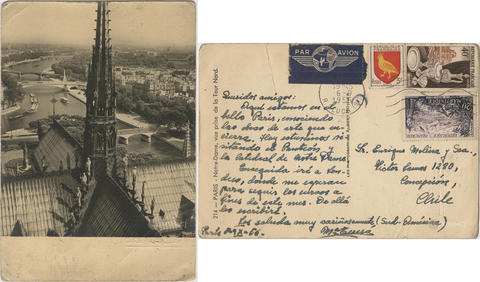 214 - PARIS - Notre-Dame, vue prise de la Tour Nord.
PAR AVION
Queridos amigos:
Aquí estamos en el
bello París, conociendo
las obras de arte que en-
cierra. Hoy estuvimos vi-
sitando el Panteón y
la Catedral de Notre Dame.
Enseguida iré a Lon-
dres, donde me esperan
para seguir los cursos a
fines de este mes. De allá
les escribiré.
Los saluda muy cariñosamente
Sr. Enrique Molina y Sra.,
Víctor Lamas 1280,
Concepción,
Chile
(Sud-América)